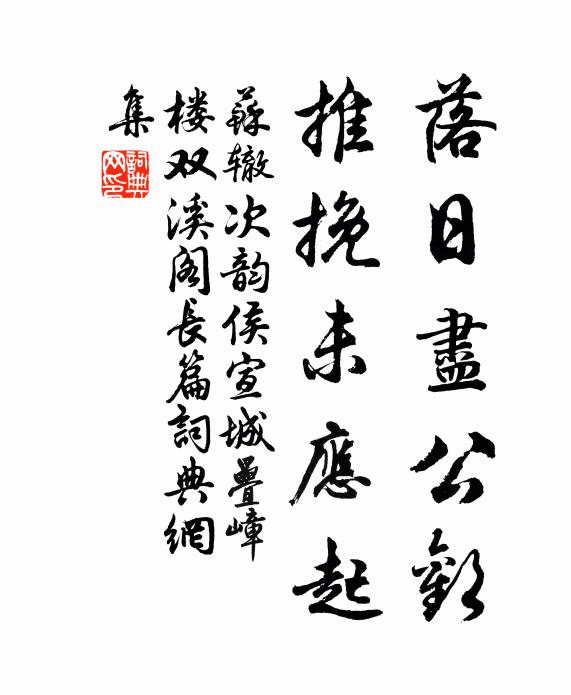 落日盡公歡
推挽未應起
蘇辙次韵侯宣城疊嶂
楼双溪阁長篇詞典網
集
詞典网印